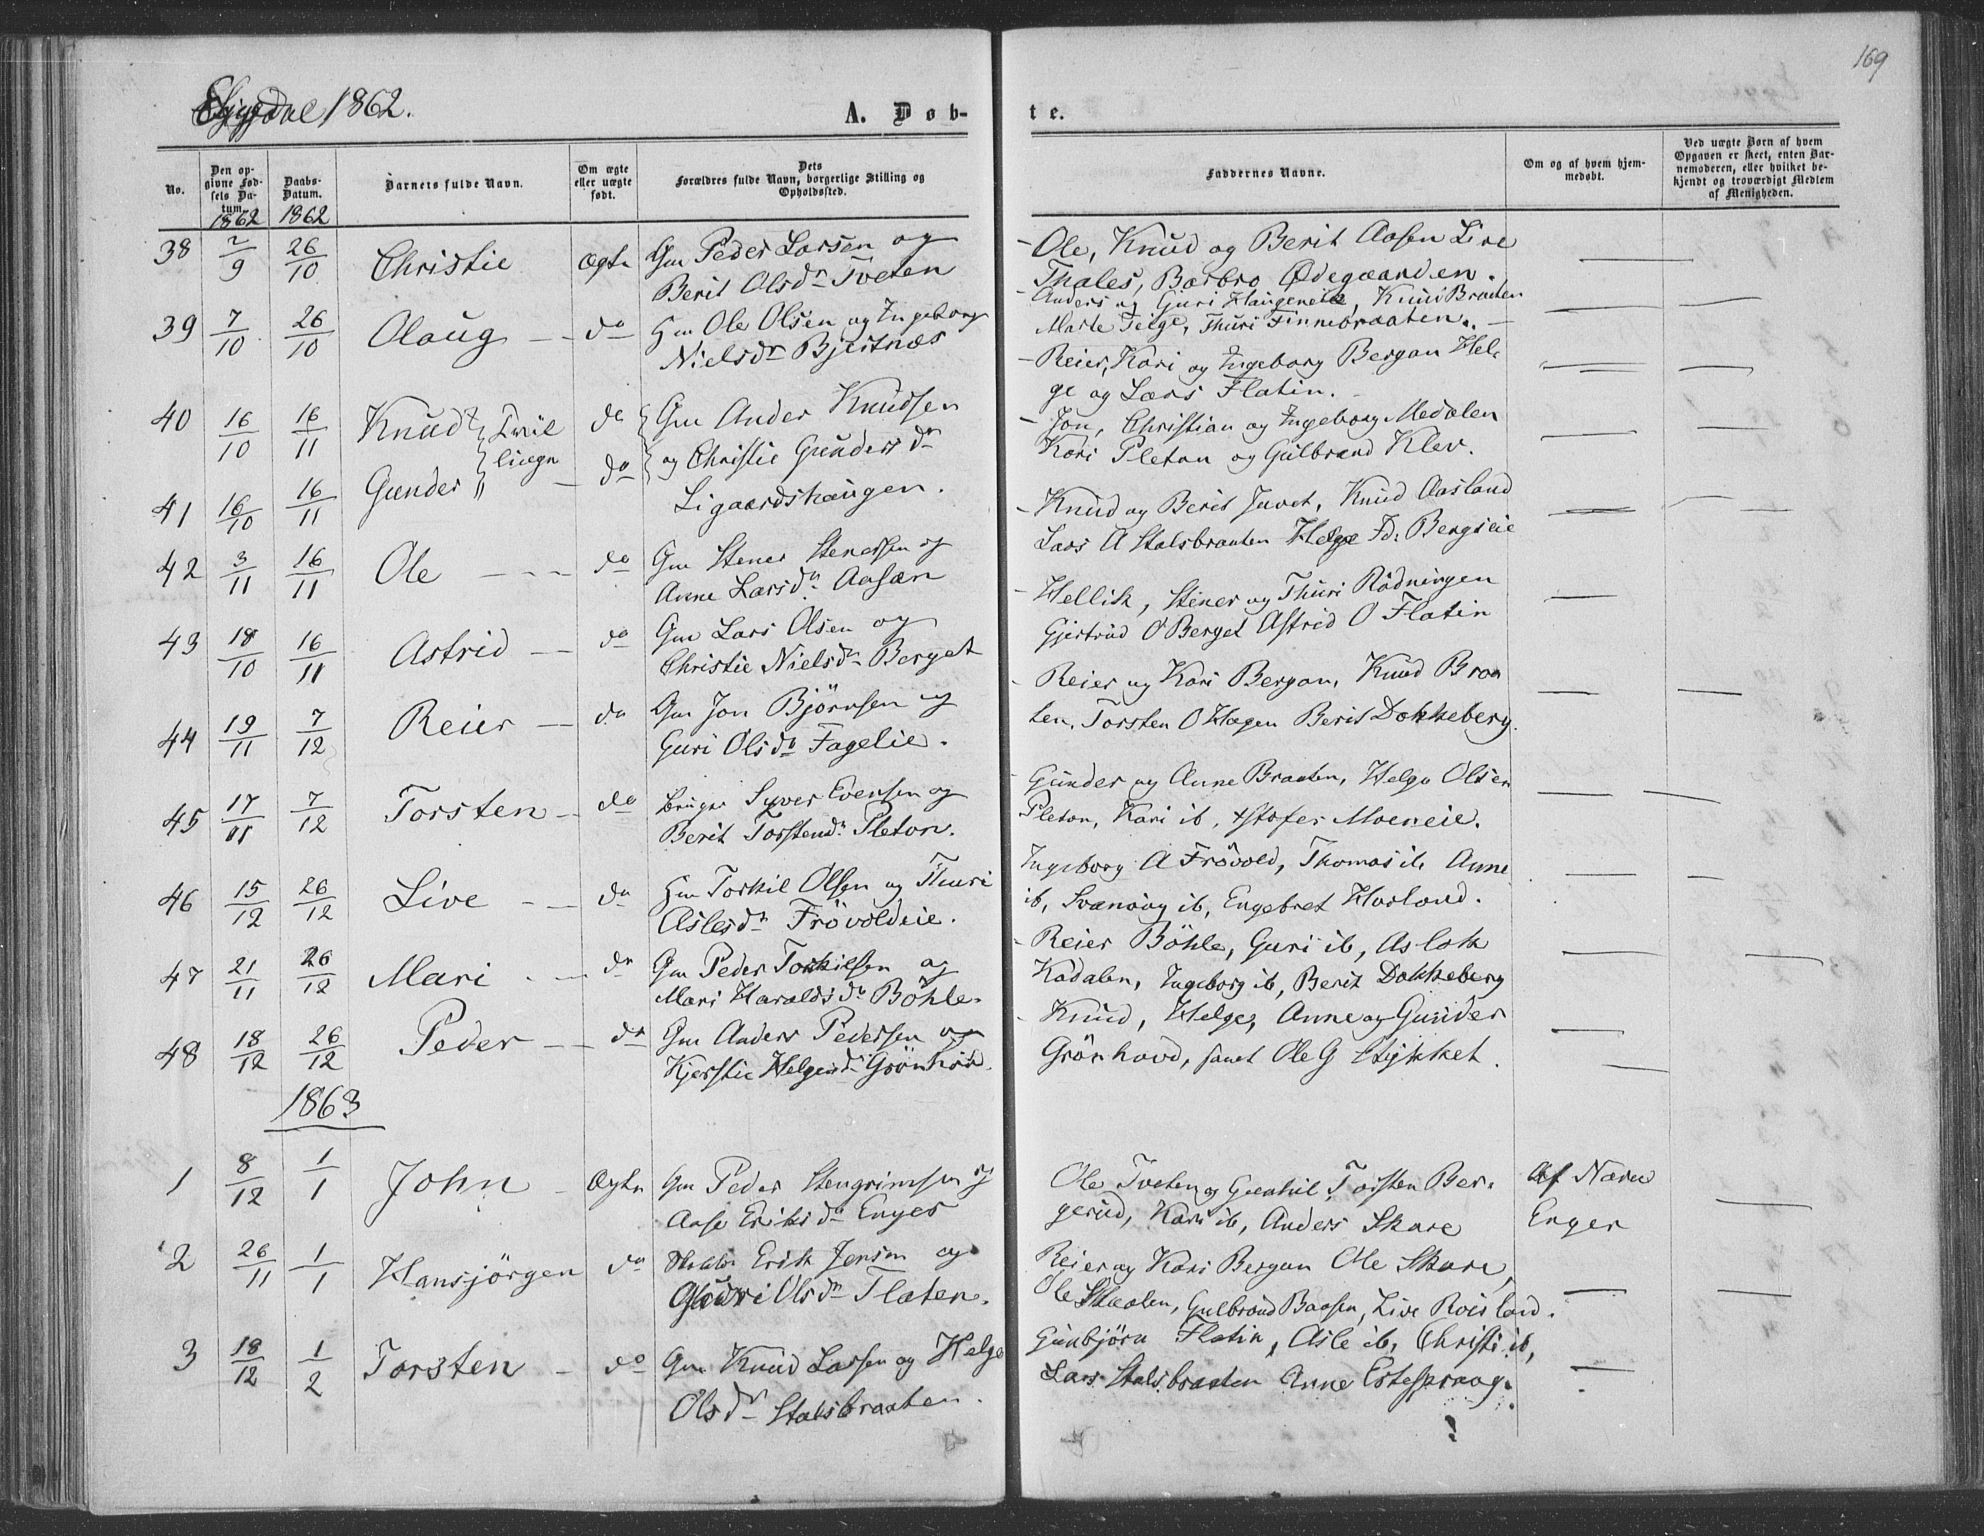 169
Eggedal 1862.
A. Døb-
te.
No.
Den op-
givne Fød-
sels Da-
tum.
1862
Daabs-
Datum.
1862
Barnets fulde Navn.
Om ægte
eller uægte
født.
Dets
Forældres fulde Navn, borgerlige Stilling og
Opholdssted.
Faddernes Navne.
Om og af hvem hjem-
medøbt.
Ved uægte Børn af hvem
Opgaven er skeet, enten Bar-
nemoderen, eller hvilket be-
kjendt og troværdigt Medlem
af Menigheden.
38 2/9 26/10 Christie Ægte Gm Peder Larsen og
Berit Olsdr Tveten
Ole, Knud og Berit Aasen Live
Thales, Barbro Ødegaarden.
39 7/10 26/10 Olaug do Hm Ole Olsen og Ingeborg
Nielsdr Bjertnæs
Anders og Guri Haugeneie, Knud Braaten
Marte Teige, Thuri Finnebraaten.
Reier, Kari og Ingeborg Bergan Hel-
ge og Lars Flatin.
40 16/10 16/11 Knud Tvil do Gm Ander Knudsen
lingn
og Christie Gundersdr
Jon, Christian og Ingeborg Medalen
Kari Pleton og Gulbrand Klev.
41 16/10 16/11 Gunder " do
Ligaardshaugen.
Knud og Berit Juvet, Knud Aasland
Lars A Stalsbraaten Helge Fd. Bergseie
42 3/11 16/11 Ole do Gm Stener Stenersen og
Anne Larsdr Aasen
Hellik, Stener og Thuri Rødningen
Gjertrud O Berget Astrid O Flatin
43 18/10 16/11 Astrid do Gm Lars Olsen og
Christie Nielsdr Berget
Reier og Kari Bergan, Knud Braa
ten, Torsten O Hagen Berit Dokkeberg.
44 19/11 7/12 Reier do Gm Jon Bjørnsen og
Guri Olsdr Fagelie.
Gunder og Anne Braaten, Helge Olsen
Pleton, Kari ib, Moeneie.
45 17/11 7/12 Torsten do Bruger Syver Evensen og
Berit Torstensdr Pleton.
Ingeborg A Frøvold, Thomas ib Anne
ib, Svanaug ib, Engebret Hovland.
46 15/12 26/12 Live do Hm Torkil Olsen og Thuri
Aslesdr Frøvoldeie.
Reier Bøhle, Guri ib, Aslak
Kadalen, Ingeborg ib, Berit Dokkeberg
47 21/11 26/12 Mari do Gm Peder Torkilsen og
Mari Haraldsdr Bøhle.
Knud, Helge, Anne og Gunder
Grønhovd, samt Ole G Stykket.
48 18/12 26/12 Peder do Gm Anders Pedersen og
Kjerstie Helgesdr Grønhovd.
1863
1 8/12 1/1 John Ægte Gm Peder Stengrimsen og
Aase Eriksdr Enger
Ole Tveten og Gunhil, Torsten Ber-
gerud, Kari ib, Anders Skare
Af Narve
Enger
2 26/11 1/1 Hansjørgen do Erik Jensen og
Guri Olsdr Flaten.
Reier og Kari Bergan Ole Skare,
Ole Skaalen, Gulbrand Baasen, Live Roisland.
3 18/12 1/2 Torsten do Gm Knud Larsen og Helge
Olsdr Stalsbraaten.
Gunbjørn Flatin, Asle ib, Christi ib,
Lars Stalsbraaten Anne Estespraag.